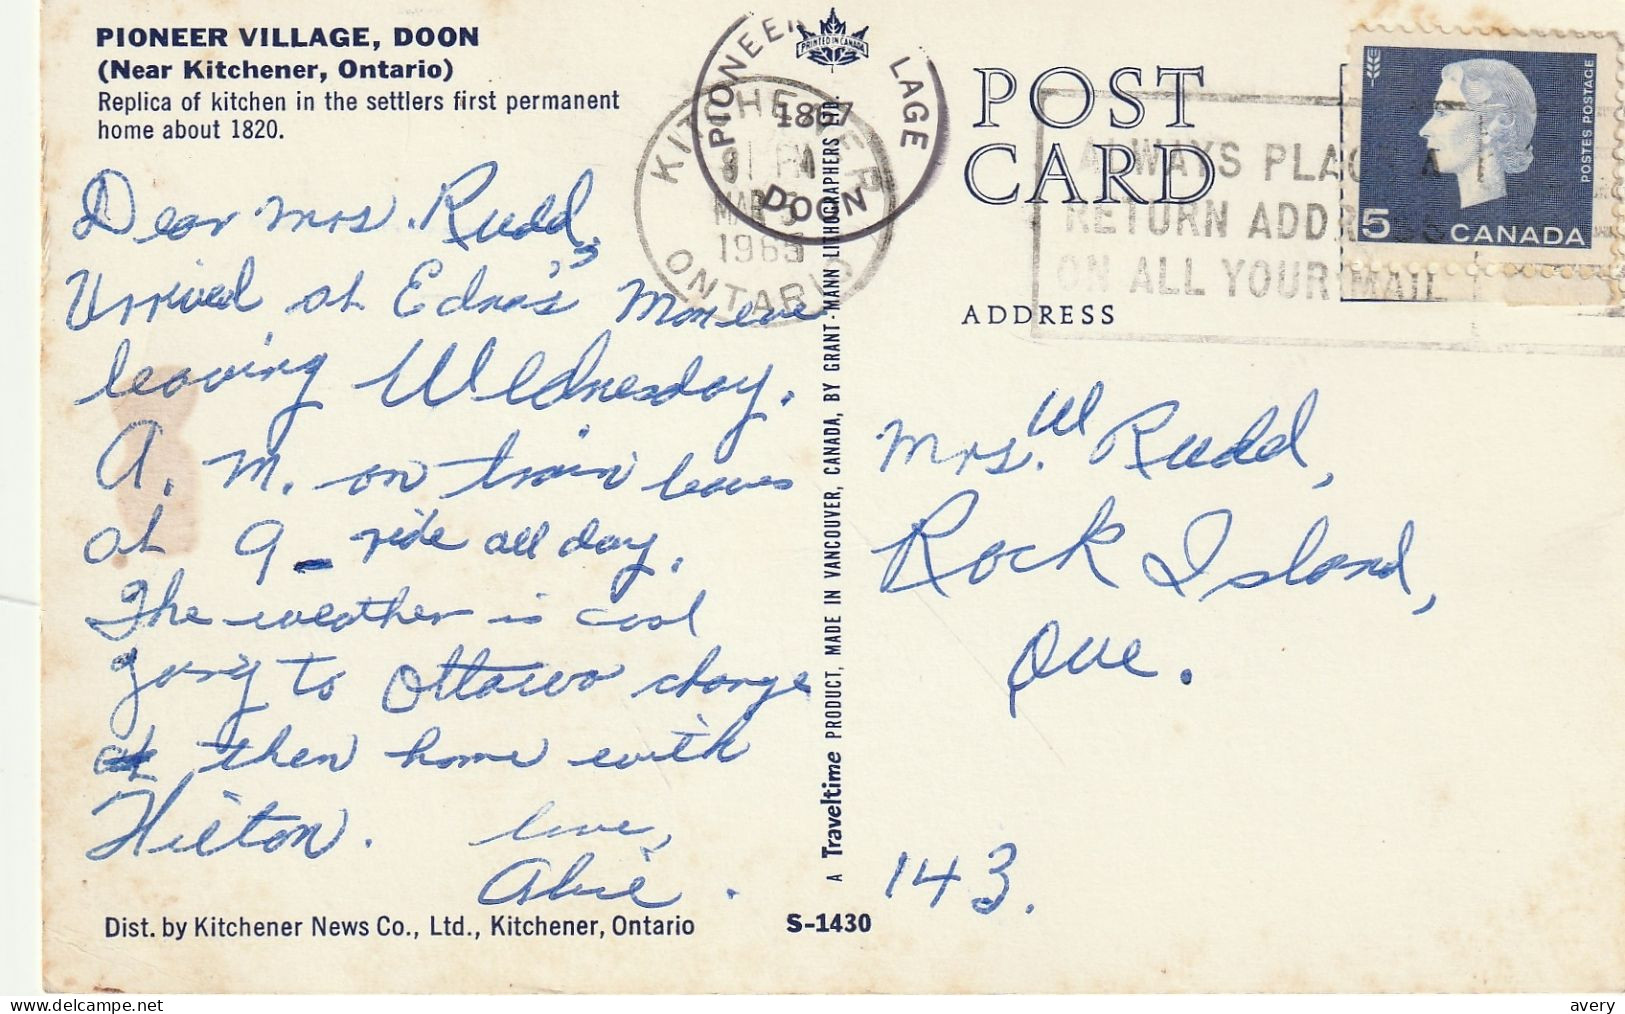 PIONEER VILLAGE, DOON
(Near Kitchener, Ontario)
Replica of kitchen in the settlers first permanent
home about 1820.
Dear Mrs. Rudd,
Arrived at Edna's Mon eve
leaving Wednesday.
A. M. on train leaves
at 9 - ride all day.
The weather is cool
going to Ottawa change
at then home with
Hilton. Love,
Dist. by Kitchener News Co., Ltd., Kitchener, Ontario
S-1430
A Traveltime PRODUCT, MADE IN VANCOUVER, CANADA, BY GRANT-MANN LITHOGRAPHERS LTD.
PRINTED IN CANADA
PIONEER VILLAGE
1867
DOON
KITCHENER
PM
MAR
1965
ONTARIO
POST
CARD
ADDRESS
ALWAYS PLACE A
RETURN ADDRESS
ON ALL YOUR MAIL
POSTES POSTAGE
5 CANADA
Mrs. W Rudd,
Rock Island,
Que.
143.
avery